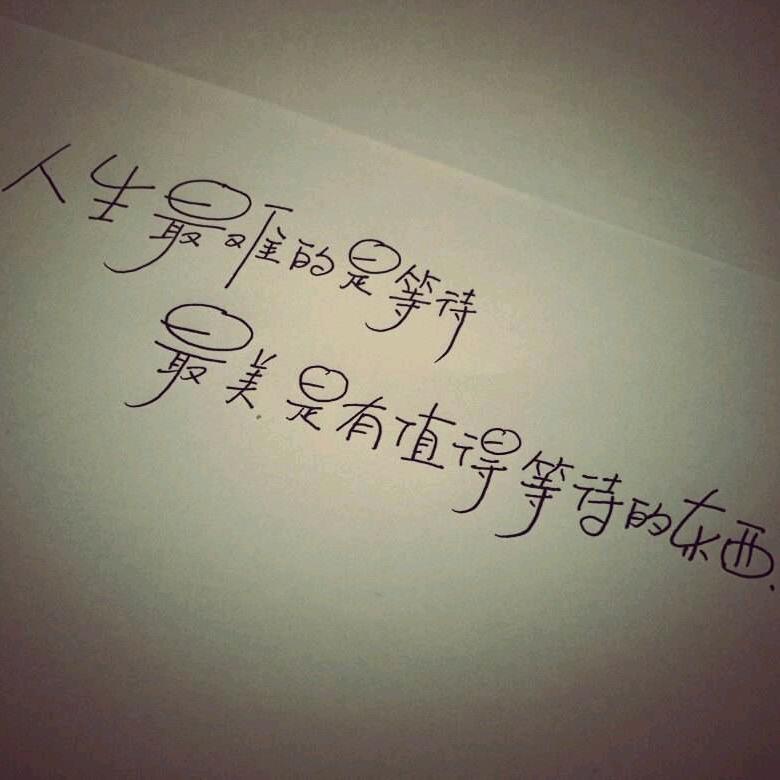 人生最难的是等待
最美是有值得等待的东西.